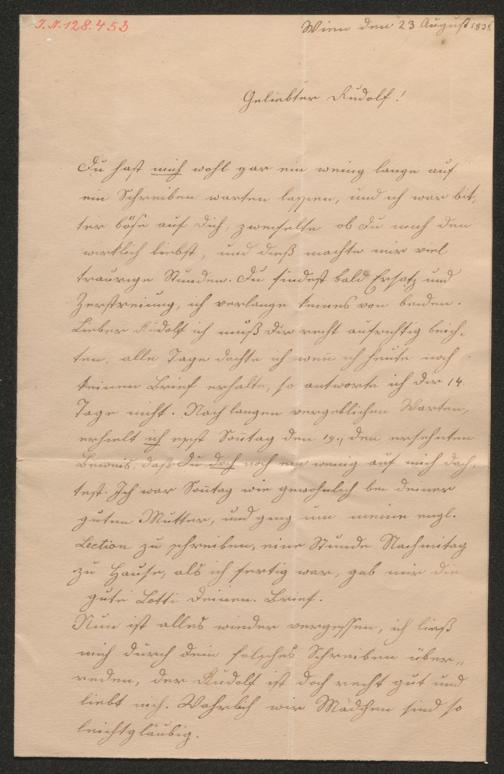 I.N. 128.453
Wien den 23 August
Geliebter Rudolf!
Du hast mich wohl gar ein wenig lange auf
ein Schreiben warten lassen, und ich war bit,
ter böse auf dich, zweifelte ob du mich den
wirklich liebst, und dieß machte mir viel
traurige Stunden. Du findest bald Ersatz und
Zerstreuung, ich verlange keines von beiden.
Lieber Rudolf ich muß dir recht aufrichtig beich,
ten, alle Tage dachte ich wenn ich heute noch
keinen Brief erhalte, so antworte ich dir 14
Tage nicht. Nach langen vergeblichen Warten,
erhielt ich erst Sontag den 19., den ersehnten
Beweis, daß du doch noch ein wenig auf mich dach,
test. Ich war Sontag wie gewöhnlich bei deiner
guten Mutter, und ging um meine engl.
Lection zu schreiben, eine Stunde Nachmitag
zu Hause, als ich fertig war, gab mir die
gute Lotti deinen Brief.
Nun ist alles wieder vergessen, ich ließ
mich durch dein falsches Schreiben über,,
reden, der Rudolf ist doch recht gut und
liebt mich. Wahrlich wir Mädchen sind so
leichtgläubig.